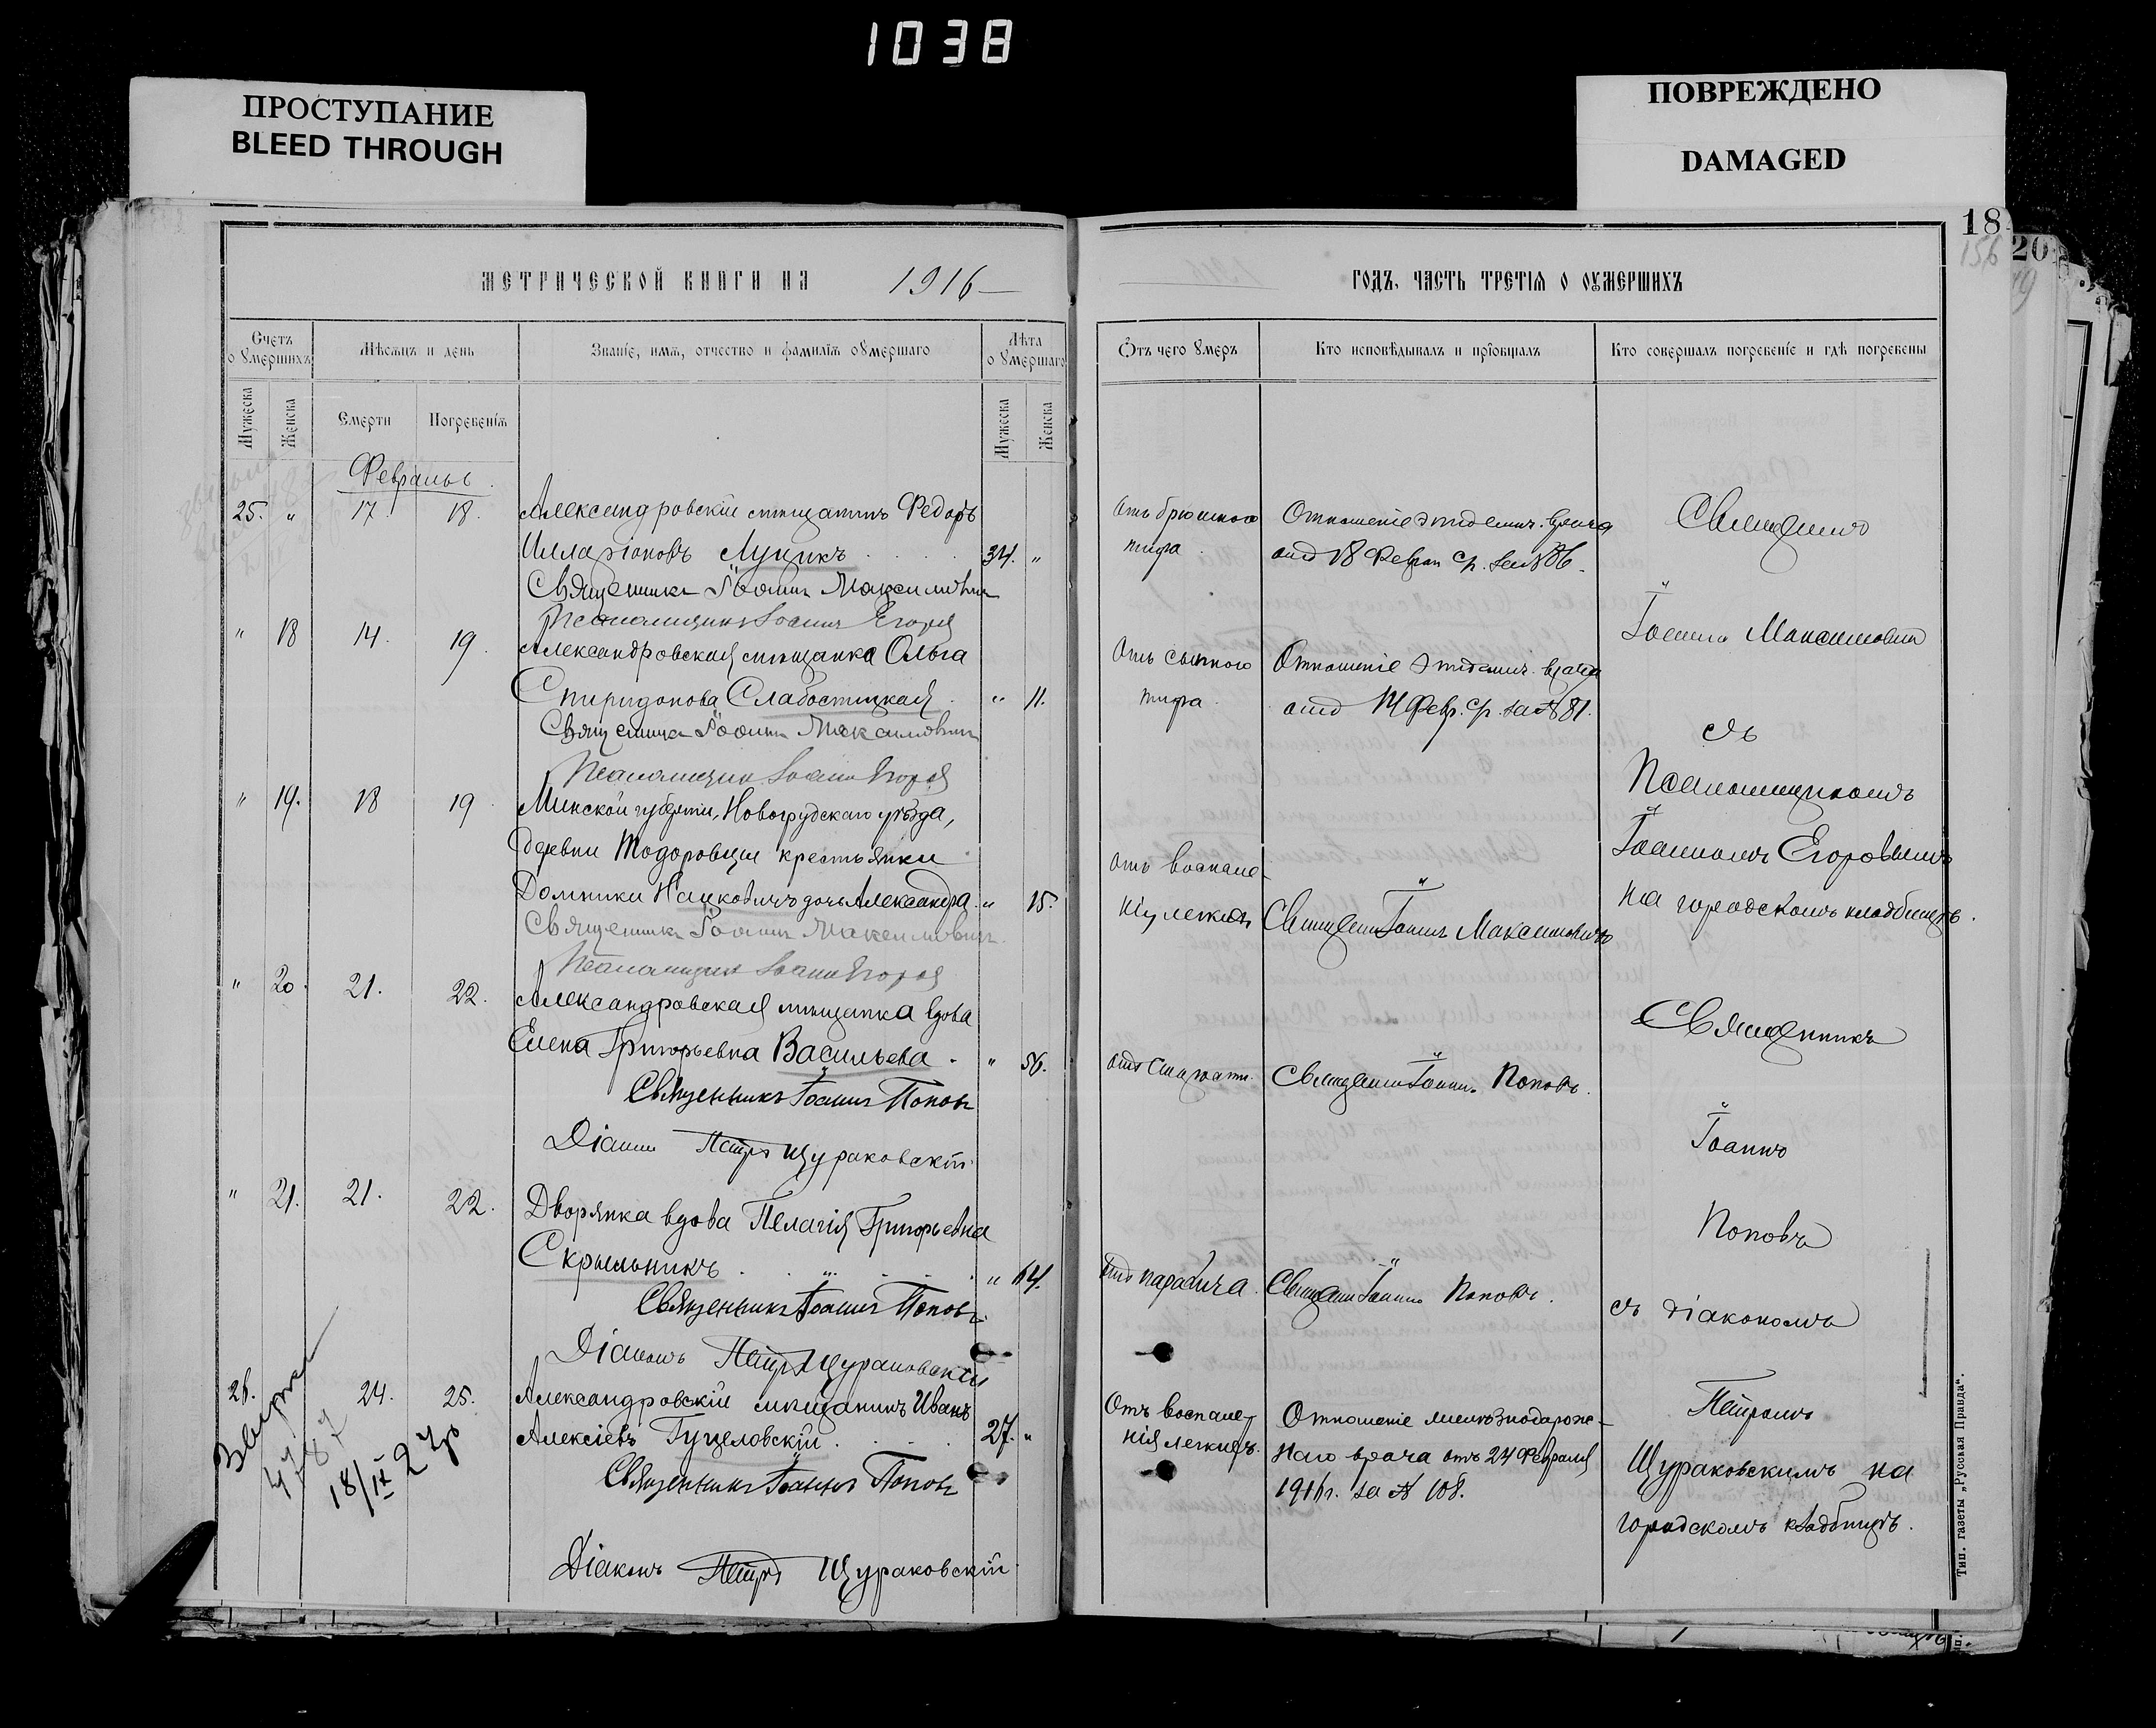 1038
ПРОСТУПАНИЕ
BLEED THROUGH
ПОВРЕЖДЕНО
DAMAGED
18
156
20
19
МЕТРИЧЕСКОЙ КНИГИ НА 1916
ГОДЪ, ЧАСТЬ ТРЕТІЯ О ОУМЕРШИХЪ
Счетъ оумершихъ
Мѣсяцъ и день
Званіе, имя, отчество и фамилія оумершаго
Лѣта оумершаго
Отъ чего умеръ
Кто исповѣдывалъ и пріобщалъ
Кто совершалъ погребеніе и гдѣ погребены
Мужеска
Женска
Смерти
Погребенія
Мужеска
Женска
Февраль.
25. " 17. 18. Александровскій мѣщанинъ Федоръ
Илларіоновъ Луцикъ 34. "
Священникъ Іоаннъ Максимовичъ
Псаломщикъ Іоаннъ Егоровъ
Отъ брюшного
тифа
Отношеніе эпидемич. врача
отъ 18 Феврал. с/г. за № 86.
" 18 14. 19. Александровская мѣщанка Ольга
Спиридонова Слабостицкая " 11.
Священникъ Іоаннъ Максимовичъ
Псаломщикъ Іоаннъ Егоровъ
Отъ сыпного
тифа
Отношеніе эпидемич. врача
отъ 14 Февр. с/г. за № 81.
Священникъ
Іоаннъ Максимовичъ
съ
Псаломщикомъ
Іоанномъ Егоровымъ
на городскомъ кладбищѣ.
" 19. 18 19 Минской губерніи, Новогрудскаго уѣзда,
деревни Тодоровцы крестьянки
Домники Нацковичъ дочь Александра " 15.
Священникъ Іоаннъ Максимовичъ
Псаломщикъ Іоаннъ Егоровъ
Отъ воспале-
нія легкихъ
Священ. Іоаннъ Максимовичъ
" 20. 21. 22. Александровская мѣщанка вдова
Елена Григорьевна Васильева. " 56.
Священникъ Іоаннъ Поповъ
Діаконъ Петръ Щураковскій
Священ. Іоаннъ Поповъ.
" 21. 21. 22. Дворянка вдова Пелагія Григорьевна
Скрыльникъ " 64.
Священникъ Іоаннъ Поповъ.
Діаконъ Петръ Щураковскій
Отъ паралича.
Священ. Іоаннъ Поповъ.
26. 24. 25. Александровскій мѣщанинъ Иванъ
Алексіевъ Гуцеловскій 27. "
Священникъ Іоаннъ Поповъ
Діаконъ Петръ Щураковскій
Отъ воспале-
нія легкихъ.
Отношеніе желѣзнодорож-
наго врача отъ 24 Февраля
1916 г. за № 108.
Священникъ
Іоаннъ
Поповъ
съ діакономъ
Петромъ
Щураковскимъ на
городскомъ кладбищѣ.
18/IX
Тип. газеты „Русская Правда“.